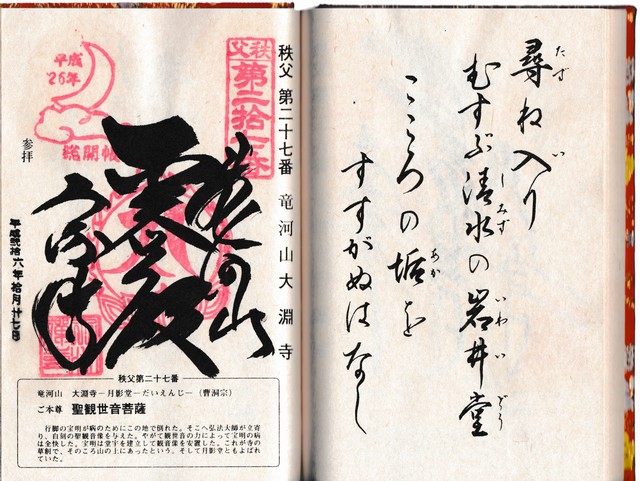 尋ね入り
たず
い
むすぶ清水の岩井堂
しみず
いわいどう
こころの垢を
あか
すすがぬはなし
秩父 第二十七番 竜河山大淵寺
秩父
第二拾七番
平成
'26年
総開帳
参拝
平成弐拾六年拾月廿七日
秩父第二十七番
竜河山 大淵寺―月影堂―だいえんじ―(曹洞宗)
ご本尊 聖観世音菩薩
行脚の宝明が病のためにこの地で倒れた。そこへ弘法大師が立寄
り、自刻の聖観音像を与えた。やがて観世音の力によって宝明の病
は全快した。宝明は堂宇を建立して観音像を安置した。これが寺の
草創で、そのころ山の上にあったという。そして月影堂ともよばれ
ていた。